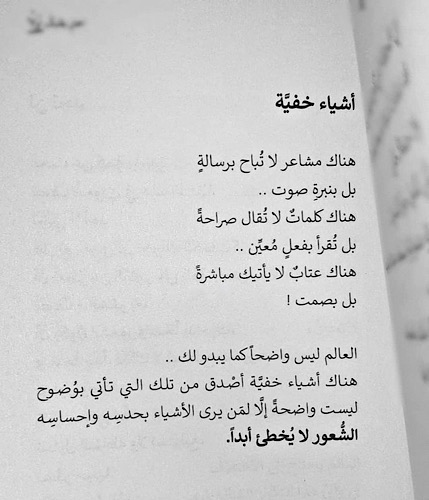 أشياء خفيَّة
هناك مشاعر لا تُباح برسالةٍ
بل بنبرةِ صوت ..
هناك كلماتٌ لا تُقال صراحةً
بل تُقرأ بفعلٍ مُعيِّن ..
هناك عتابٌ لا يأتيك مباشرةً
بل بصمت !
العالم ليس واضحاً كما يبدو لك ..
هناك أشياء خفيَّة أصْدق من تلك التي تأتي بوُضوح
ليست واضحةً إلَّا لمَن يرى الأشياء بحدسِه وإحساسِه
الشُّعور لا يُخطئ أبداً.